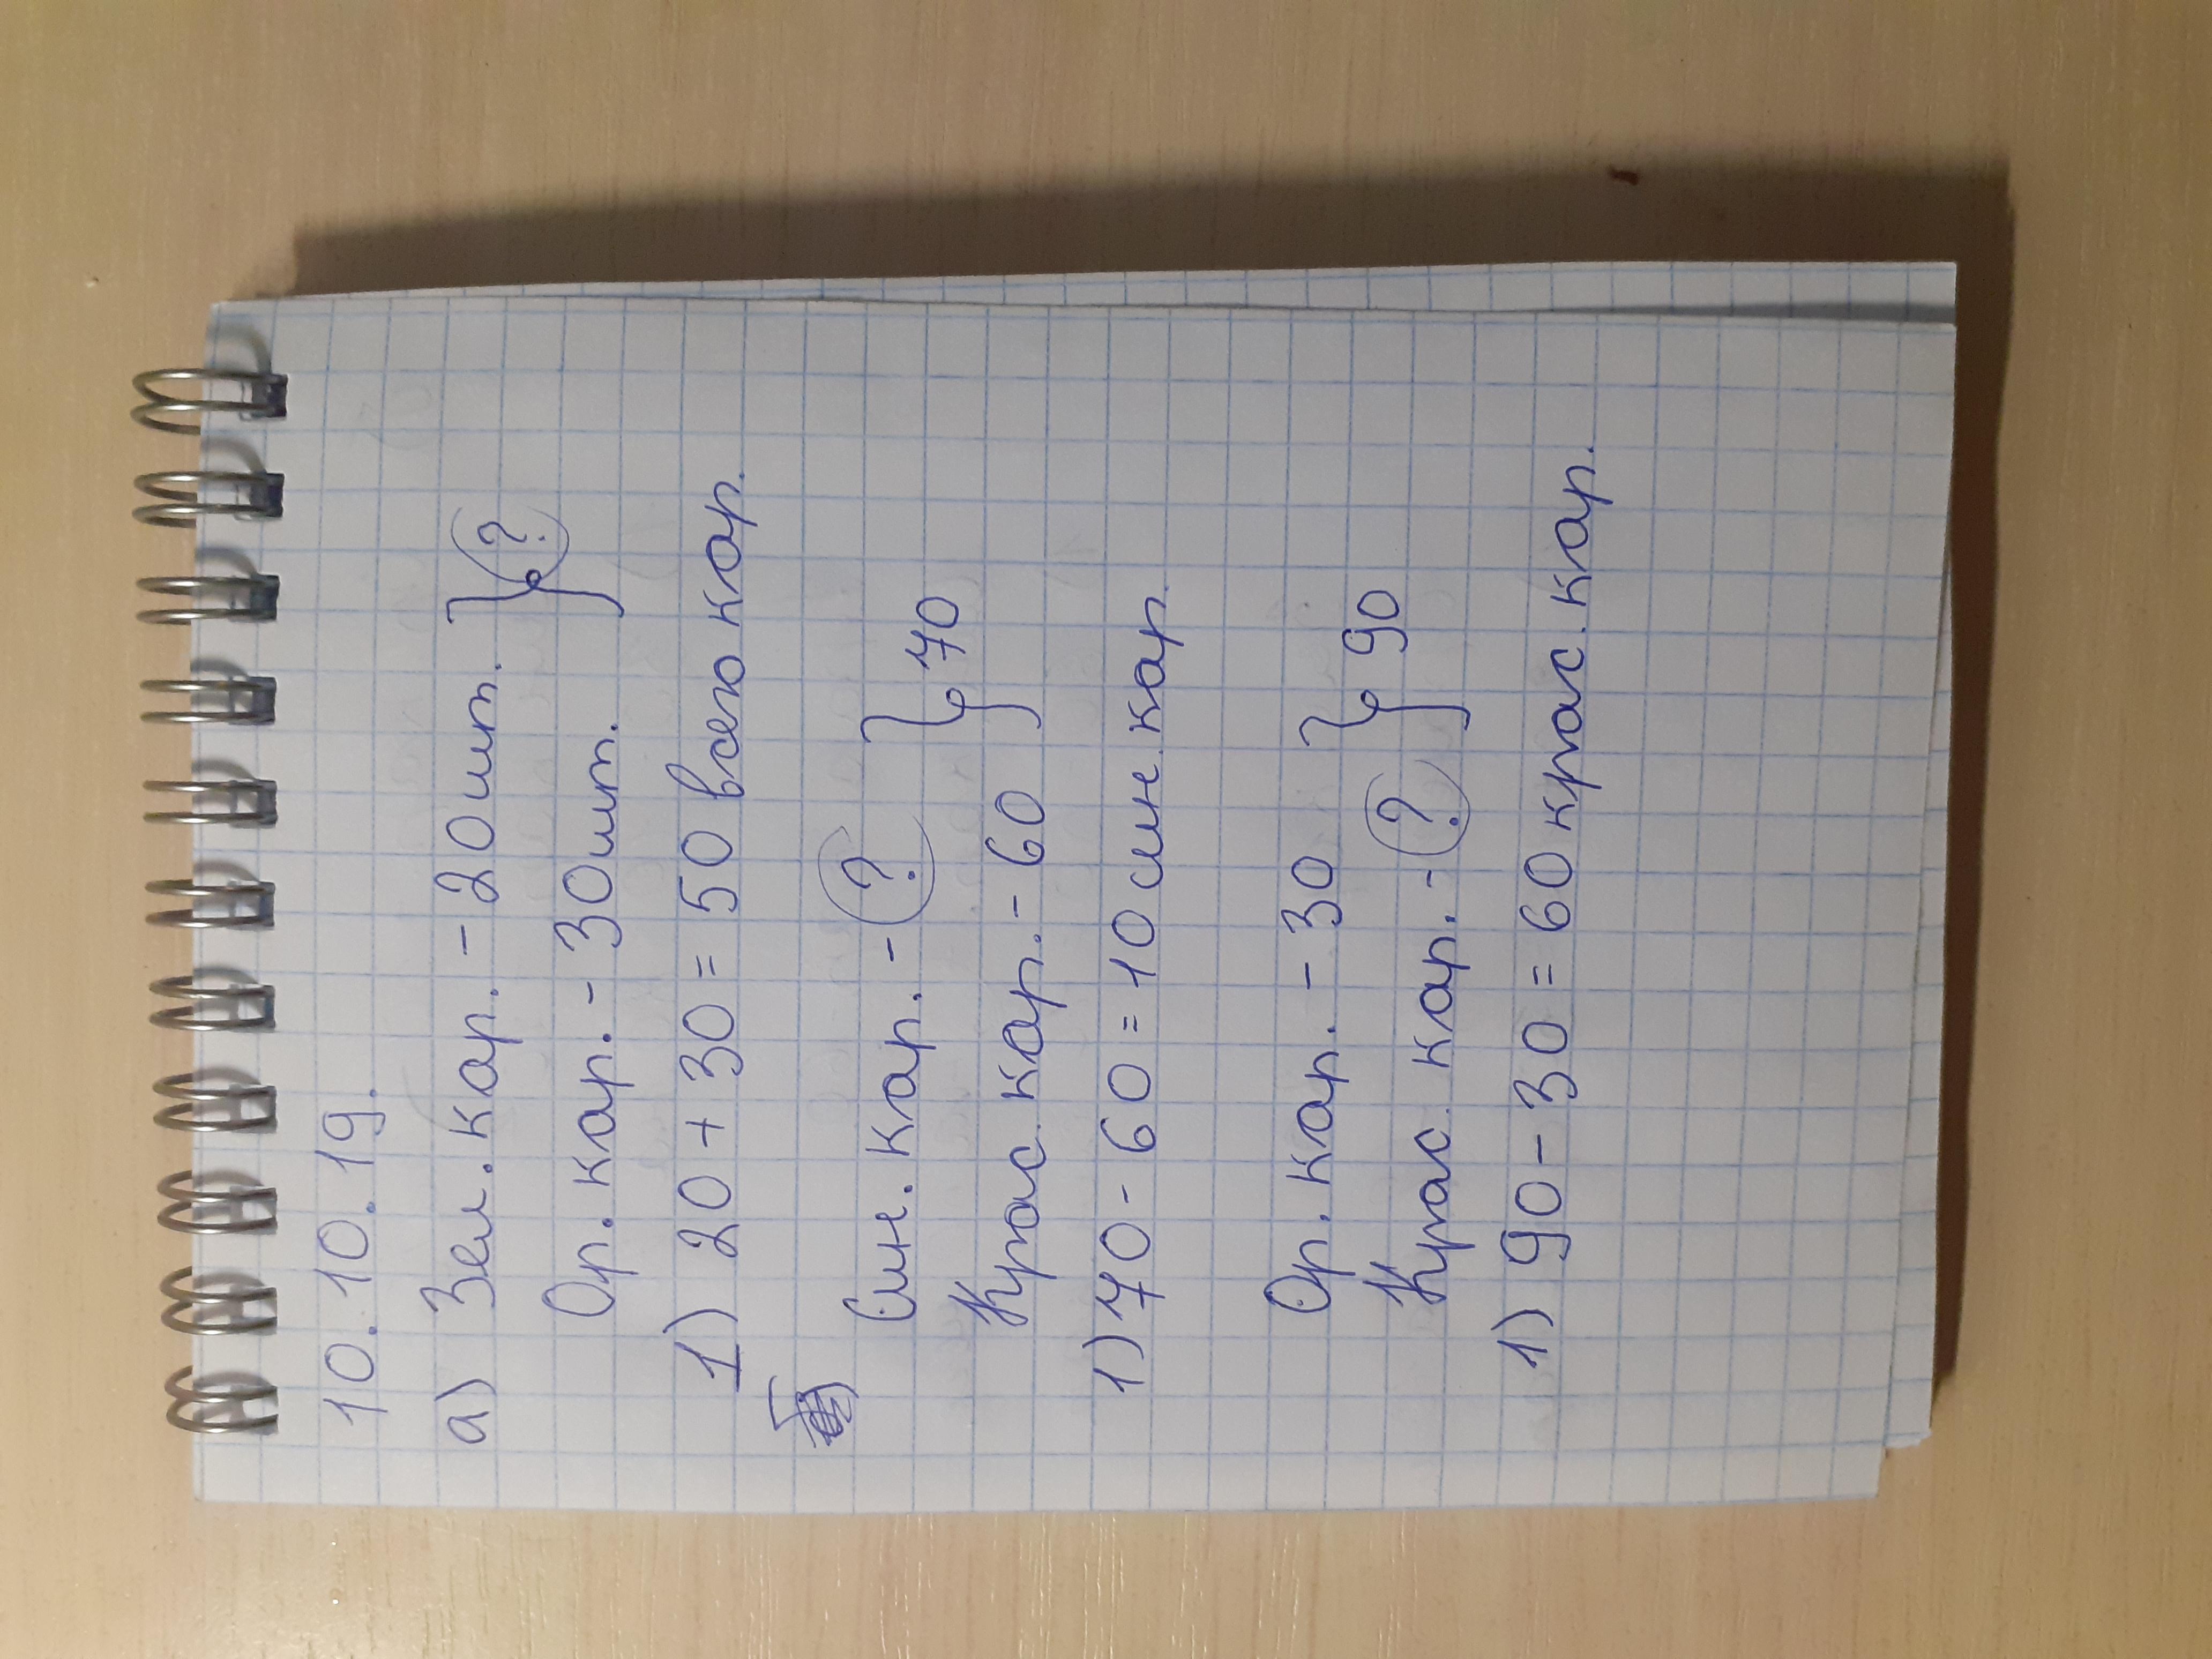 10.10.19.
а) Зел. кар. - 20 шт. } ?
Ор. кар. - 30 шт.
1) 20 + 30 = 50 всего кар.
б) Син. кар. - ? } 70
Крас. кар. - 60
1) 70 - 60 = 10 син. кар.
Ор. кар. - 30 } 90
Крас. кар. - ?
1) 90 - 30 = 60 крас. кар.